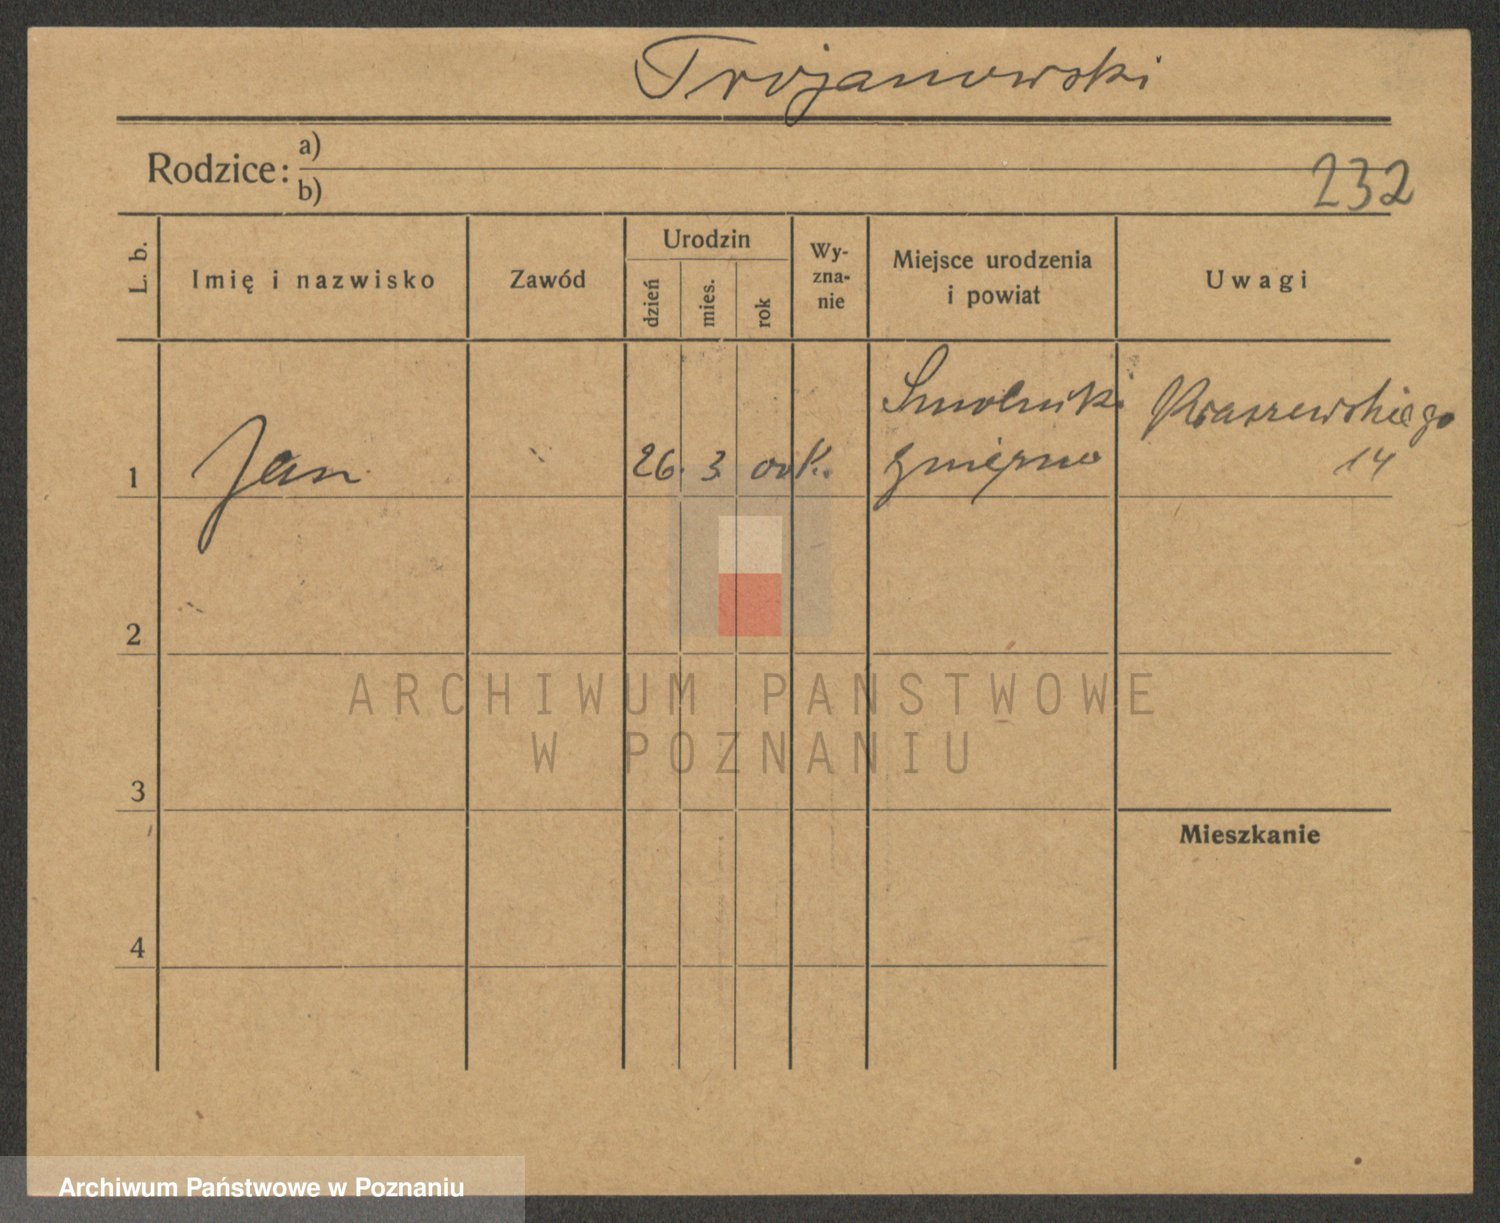 Trojanowski
Rodzice: a)
b)
232
L. b.
Imię i nazwisko
Zawód
Urodzin
dzień
mies.
rok
Wy-
zna-
nie
Miejsce urodzenia
i powiat
Uwagi
1
Jan
26. 3. 00 K.
Smolniki
gnieźno
Kraszewskiego
14
2
3
4
Mieszkanie
ARCHIWUM PAŃSTWOWE
W POZNANIU
Archiwum Państwowe w Poznaniu